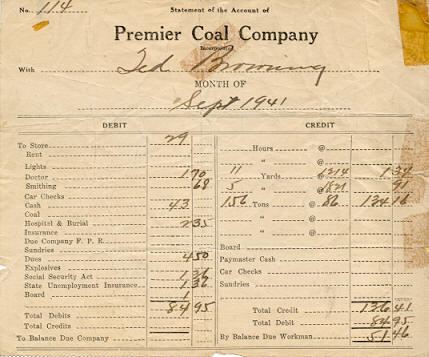 No. 114
Statement of the Account of
Premier Coal Company
Incorporated
With Ted Browning
MONTH OF
Sept 1941
DEBIT
To Store 29
Rent
Lights
Doctor 1 70
Smithing 68
Car Checks
Cash 43
Coal
Hospital & Burial 2 35
Insurance
Due Company F. P. R.
Sundries
Dues 4 50
Explosives
Social Security Act 1 36
State Unemployment Insurance 1 36
Board 1
Total Debits 84 95
Total Credits
To Balance Due Company
CREDIT
Hours @
" @
11 Yards @ 1214 1 34
5 " @ 1821 91
156 Tons @ 86 134 16
" @
" @
Board
Paymaster Cash
Car Checks
Sundries
Total Credit 136 41
Total Debit 84 95
By Balance Due Workman 51 46